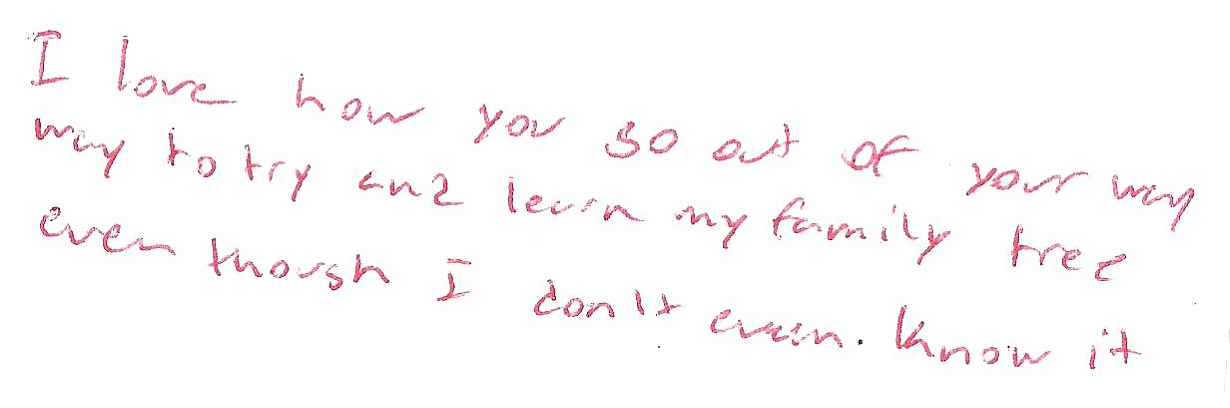 I love how you go out of your way
way to try and learn my family tree
even though I don't even. know it